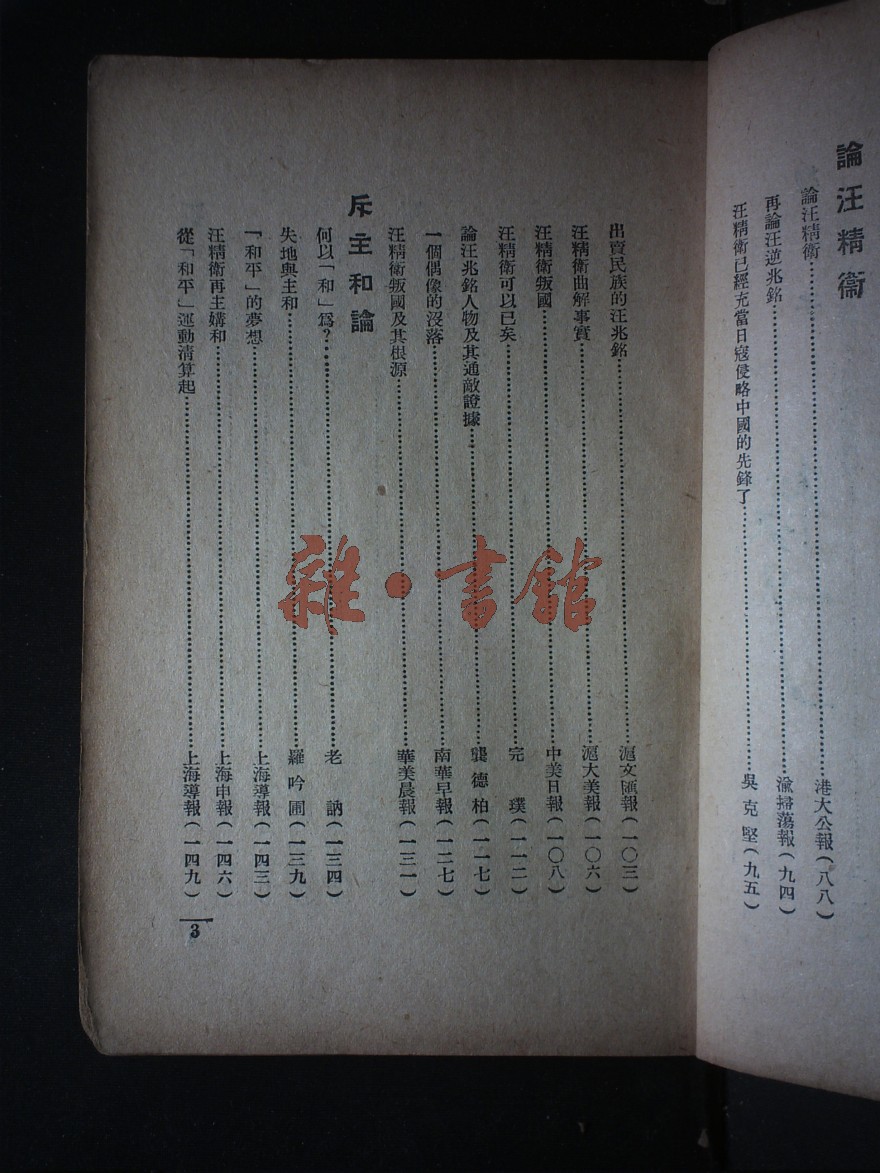 論汪精衞
論汪精衛……港大公報(八八)
再論汪逆兆銘……渝掃蕩報(九四)
汪精衛已經充當日寇侵略中國的先鋒了……吳克堅(九五)
出賣民族的汪兆銘……滬文匯報(一〇三)
汪精衛曲解事實……滬大美報(一〇六)
汪精衛叛國……中美日報(一〇八)
汪精衛可以已矣……完璞(一一二)
論汪兆銘人物及其通敵證據……龔德柏(一一七)
一個偶像的沒落……南華早報(一二七)
汪精衛叛國及其根源……華美晨報(一三一)
斥主和論
何以「和」爲?……老訥(一三四)
失地與主和……羅吟圃(一三九)
「和平」的夢想……上海導報(一四三)
汪精衛再主媾和……上海申報(一四六)
從「和平」運動清算起……上海導報(一四九)
3
雜·書館